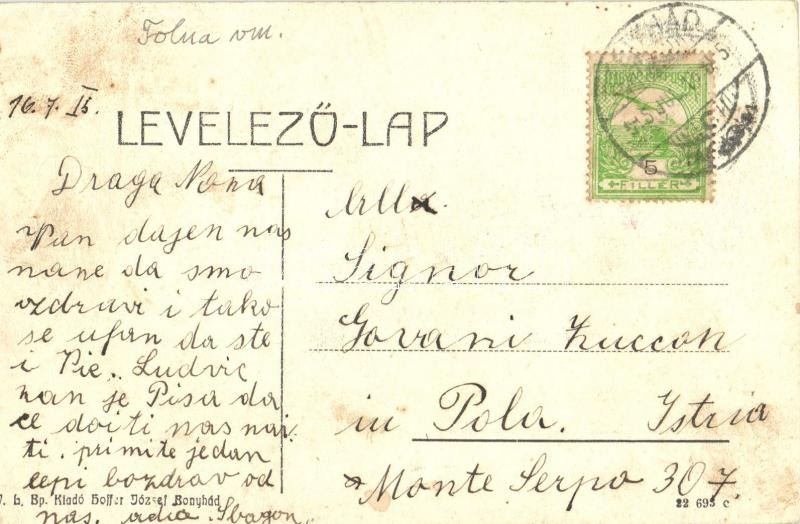 Tolna vm.
16.7.15.
LEVELEZŐ-LAP
MAGYAR KIR. POSTA
5
FILLÉR
Draga Nona
Van dajen nas
nane da smo
vzdravi i tako
se ufan da ste
i Pie. Ludvic
nan je Pisa da
ce doiti nas nai
ti. primite jedan
lepi bozdrav od
nas.
Signor
Govani Zuccon
in Pola. Istria
Monte Serpo 307.
L. Bp. Kiadó Hoffer József Bonyhád
22 695 c